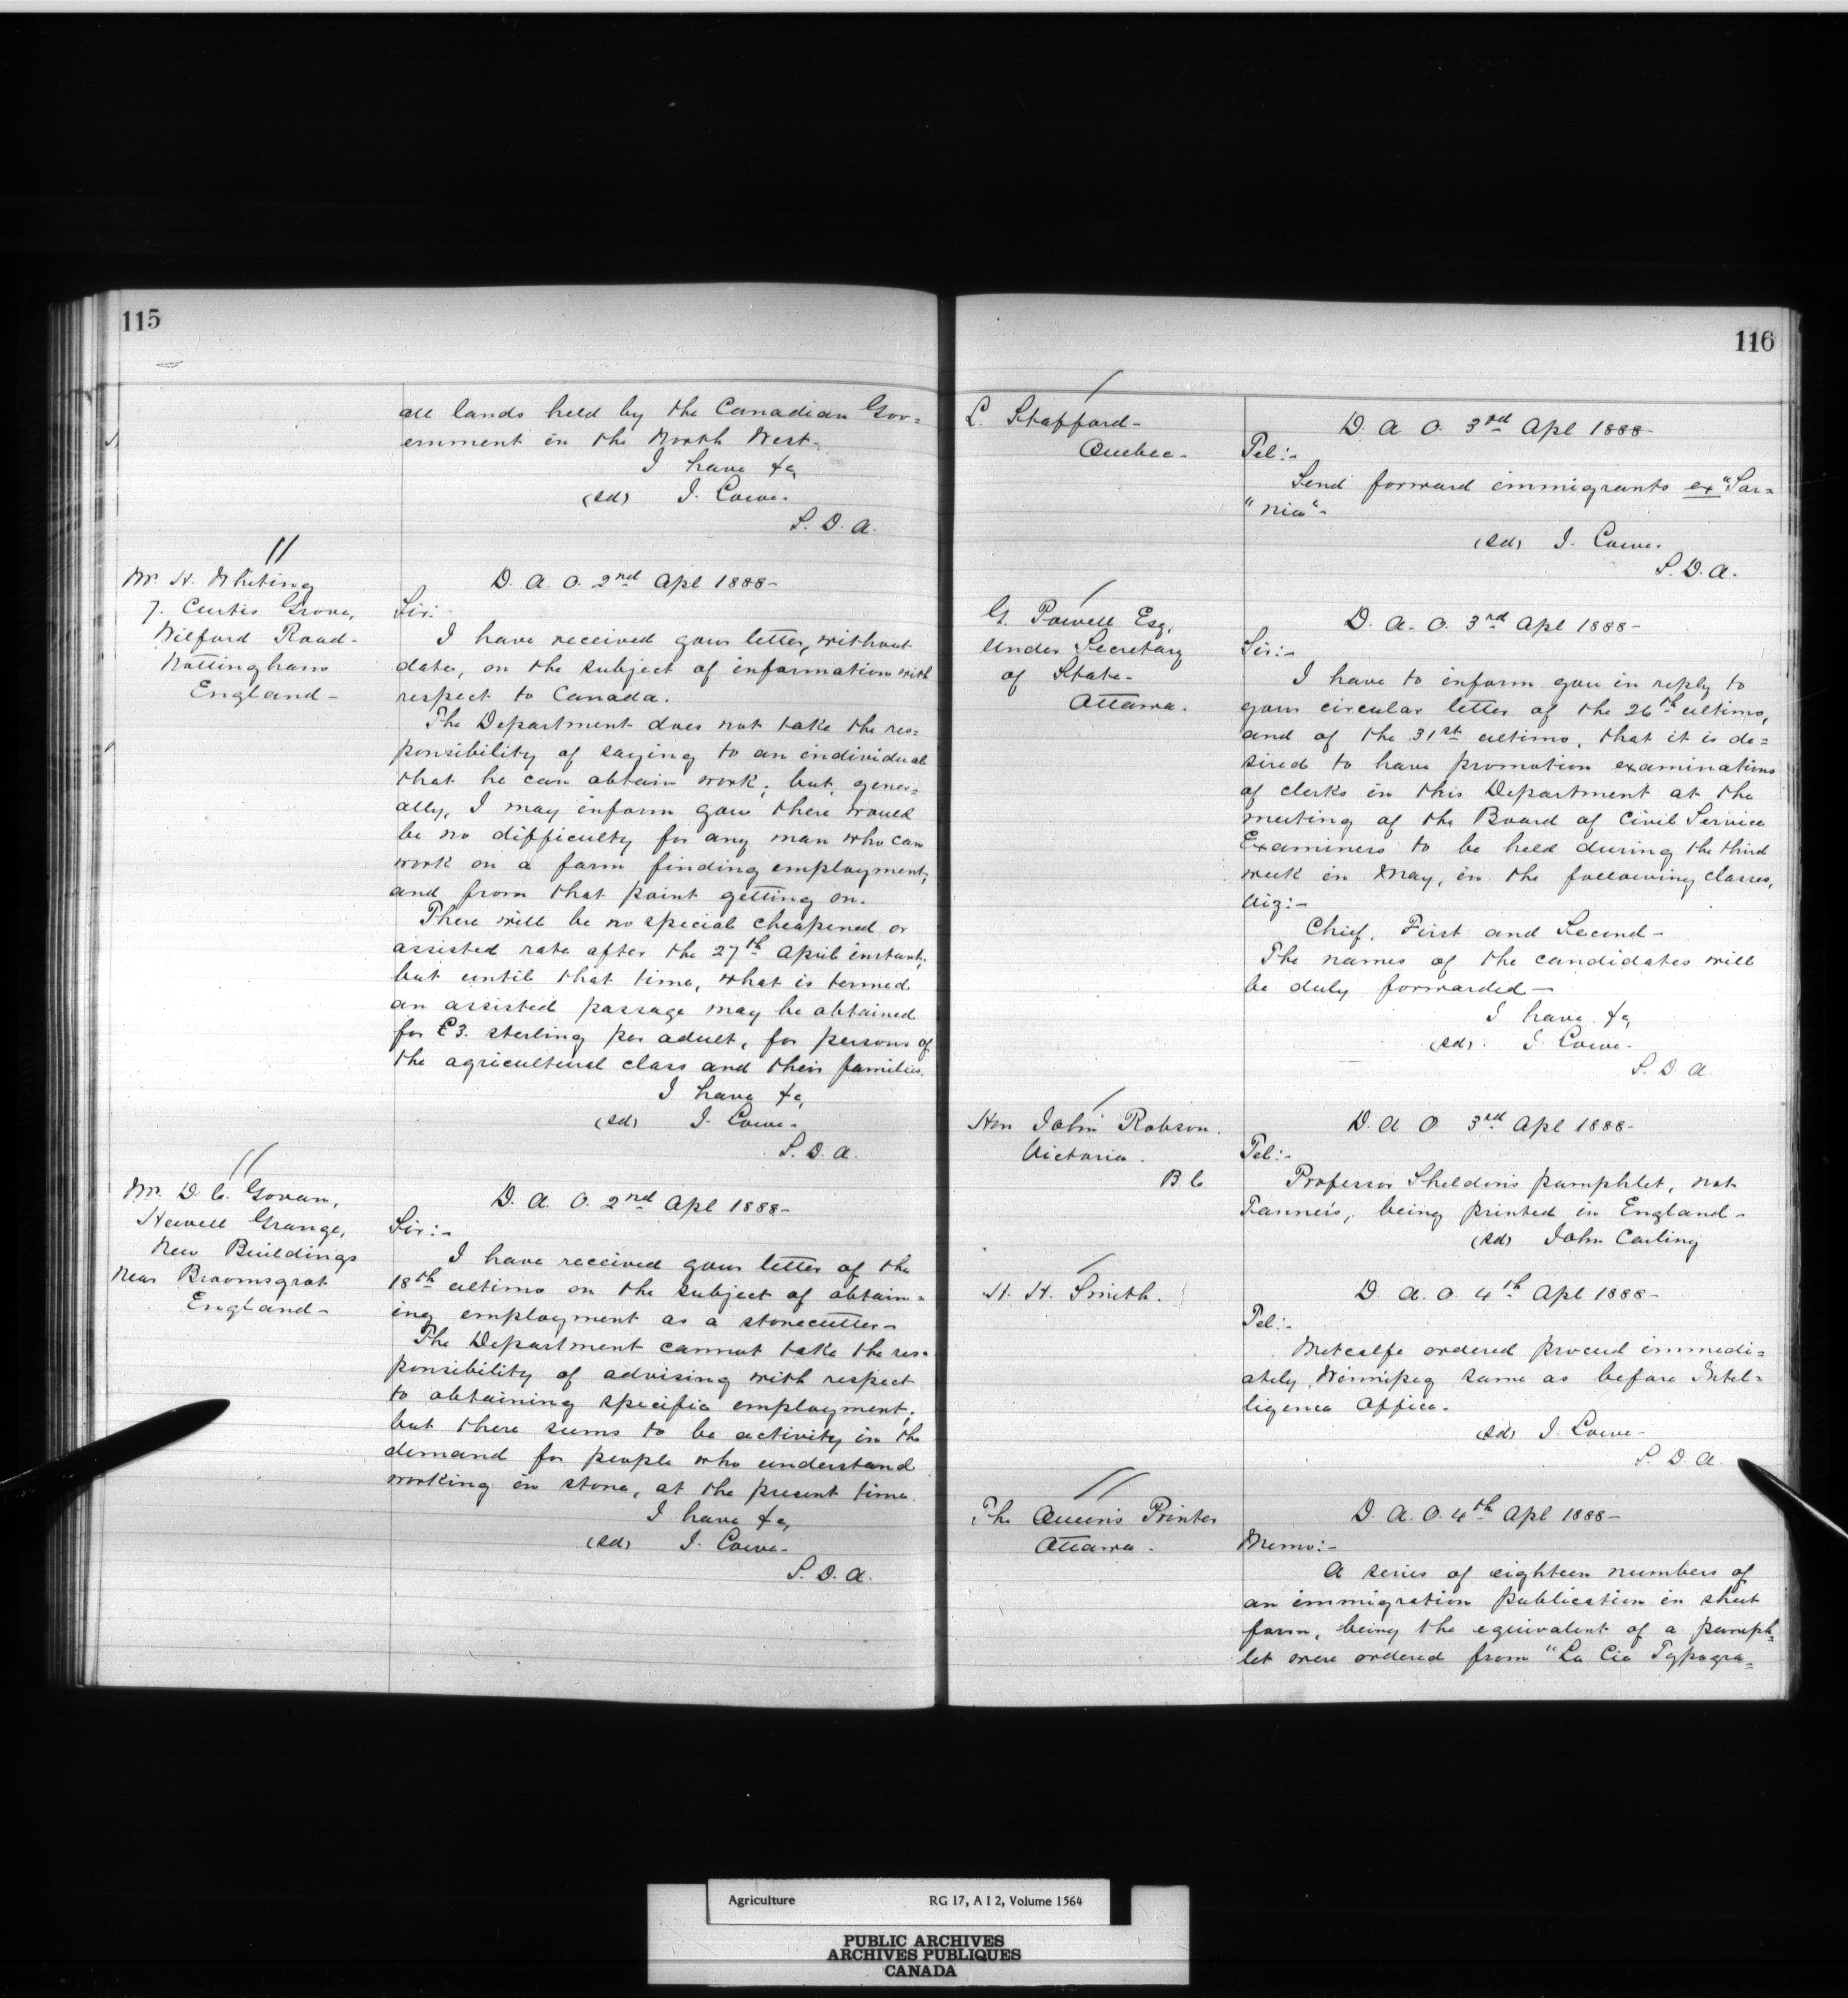 115
all lands held by the Canadian Gov=
ernment in the North West-
I have &c,
(sd) J. Lowe.
S. D. A.
Mr. H. Whiting
7. Curtis Grove,
Wilford Road-
Nottingham
England-
D. A. O. 2nd Apl 1888-
Sir:-
I have received your letter, without
date, on the subject of information with
respect to Canada.
The Department does not take the res=
ponsibility of saying to an individual
that he can obtain work; but, gener=
ally, I may inform you there would
be no difficulty for any man who can
work on a farm finding employment,
and from that point getting on.
There will be no special cheapened or
assisted rate after the 27th April instant;
but until that time, what is termed
an assisted passage may be obtained
for £3. sterling per adult, for persons of
the agricultural class and their families.
I have &c,
(sd) J. Lowe-
S. D. A.
Mr. D. C. Govan,
Hewell Grange,
New Buildings
Near Broomsgrot
England-
D. A. O. 2nd Apl 1888-
Sir:-
I have received your letter of the
18th ultimo on the subject of obtain=
ing employment as a stonecutter-
The Department cannot take the res=
ponsibility of advising with respect
to obtaining specific employment;
but there seems to be activity in the
demand for people who understand
working in stone, at the present time.
I have &c,
(sd) J. Lowe-
S. D. A.
116
L. Stafford-
Quebec-
D. A. O. 3rd Apl 1888-
Tel:-
Send forward immigrants ex "Sar=
"nia"-
(sd) J. Lowe.
S. D. A.
G. Powell Esq,
Under Secretary
of State-
Ottawa.
D. A. O. 3rd Apl 1888-
Sir:-
I have to inform you in reply to
your circular letter of the 26th ultimo,
and of the 31st ultimo, that it is de=
sired to have promotion examinations
of clerks in this Department at the
meeting of the Board of Civil Service
Examiners to be held during the third
week in May, in the following classes,
viz:-
Chief, First and Second-
The names of the candidates will
be duly forwarded-
I have &c,
(sd). J. Lowe-
S. D. A.
Hon John Robson.
Victoria.
B. C.
D. A. O. 3rd Apl 1888-
Tel:-
Professor Sheldon's pamphlet, not
Tanner's, being printed in England-
(sd) John Carling
H. H. Smith.
D. A. O. 4th Apl 1888-
Tel:-
Metcalfe ordered proceed immedi=
ately, Winnipeg same as before Intel=
ligence Office.
(sd) J. Lowe-
S. D. A.
The Queen's Printer
Ottawa.
D. A. O. 4th Apl 1888-
Memo:-
A series of eighteen numbers of
an immigration publication in sheet
form, being the equivalent of a pamph=
let were ordered from "La Cie Typogra=
Agriculture RG 17, A I 2, Volume 1564
PUBLIC ARCHIVES
ARCHIVES PUBLIQUES
CANADA